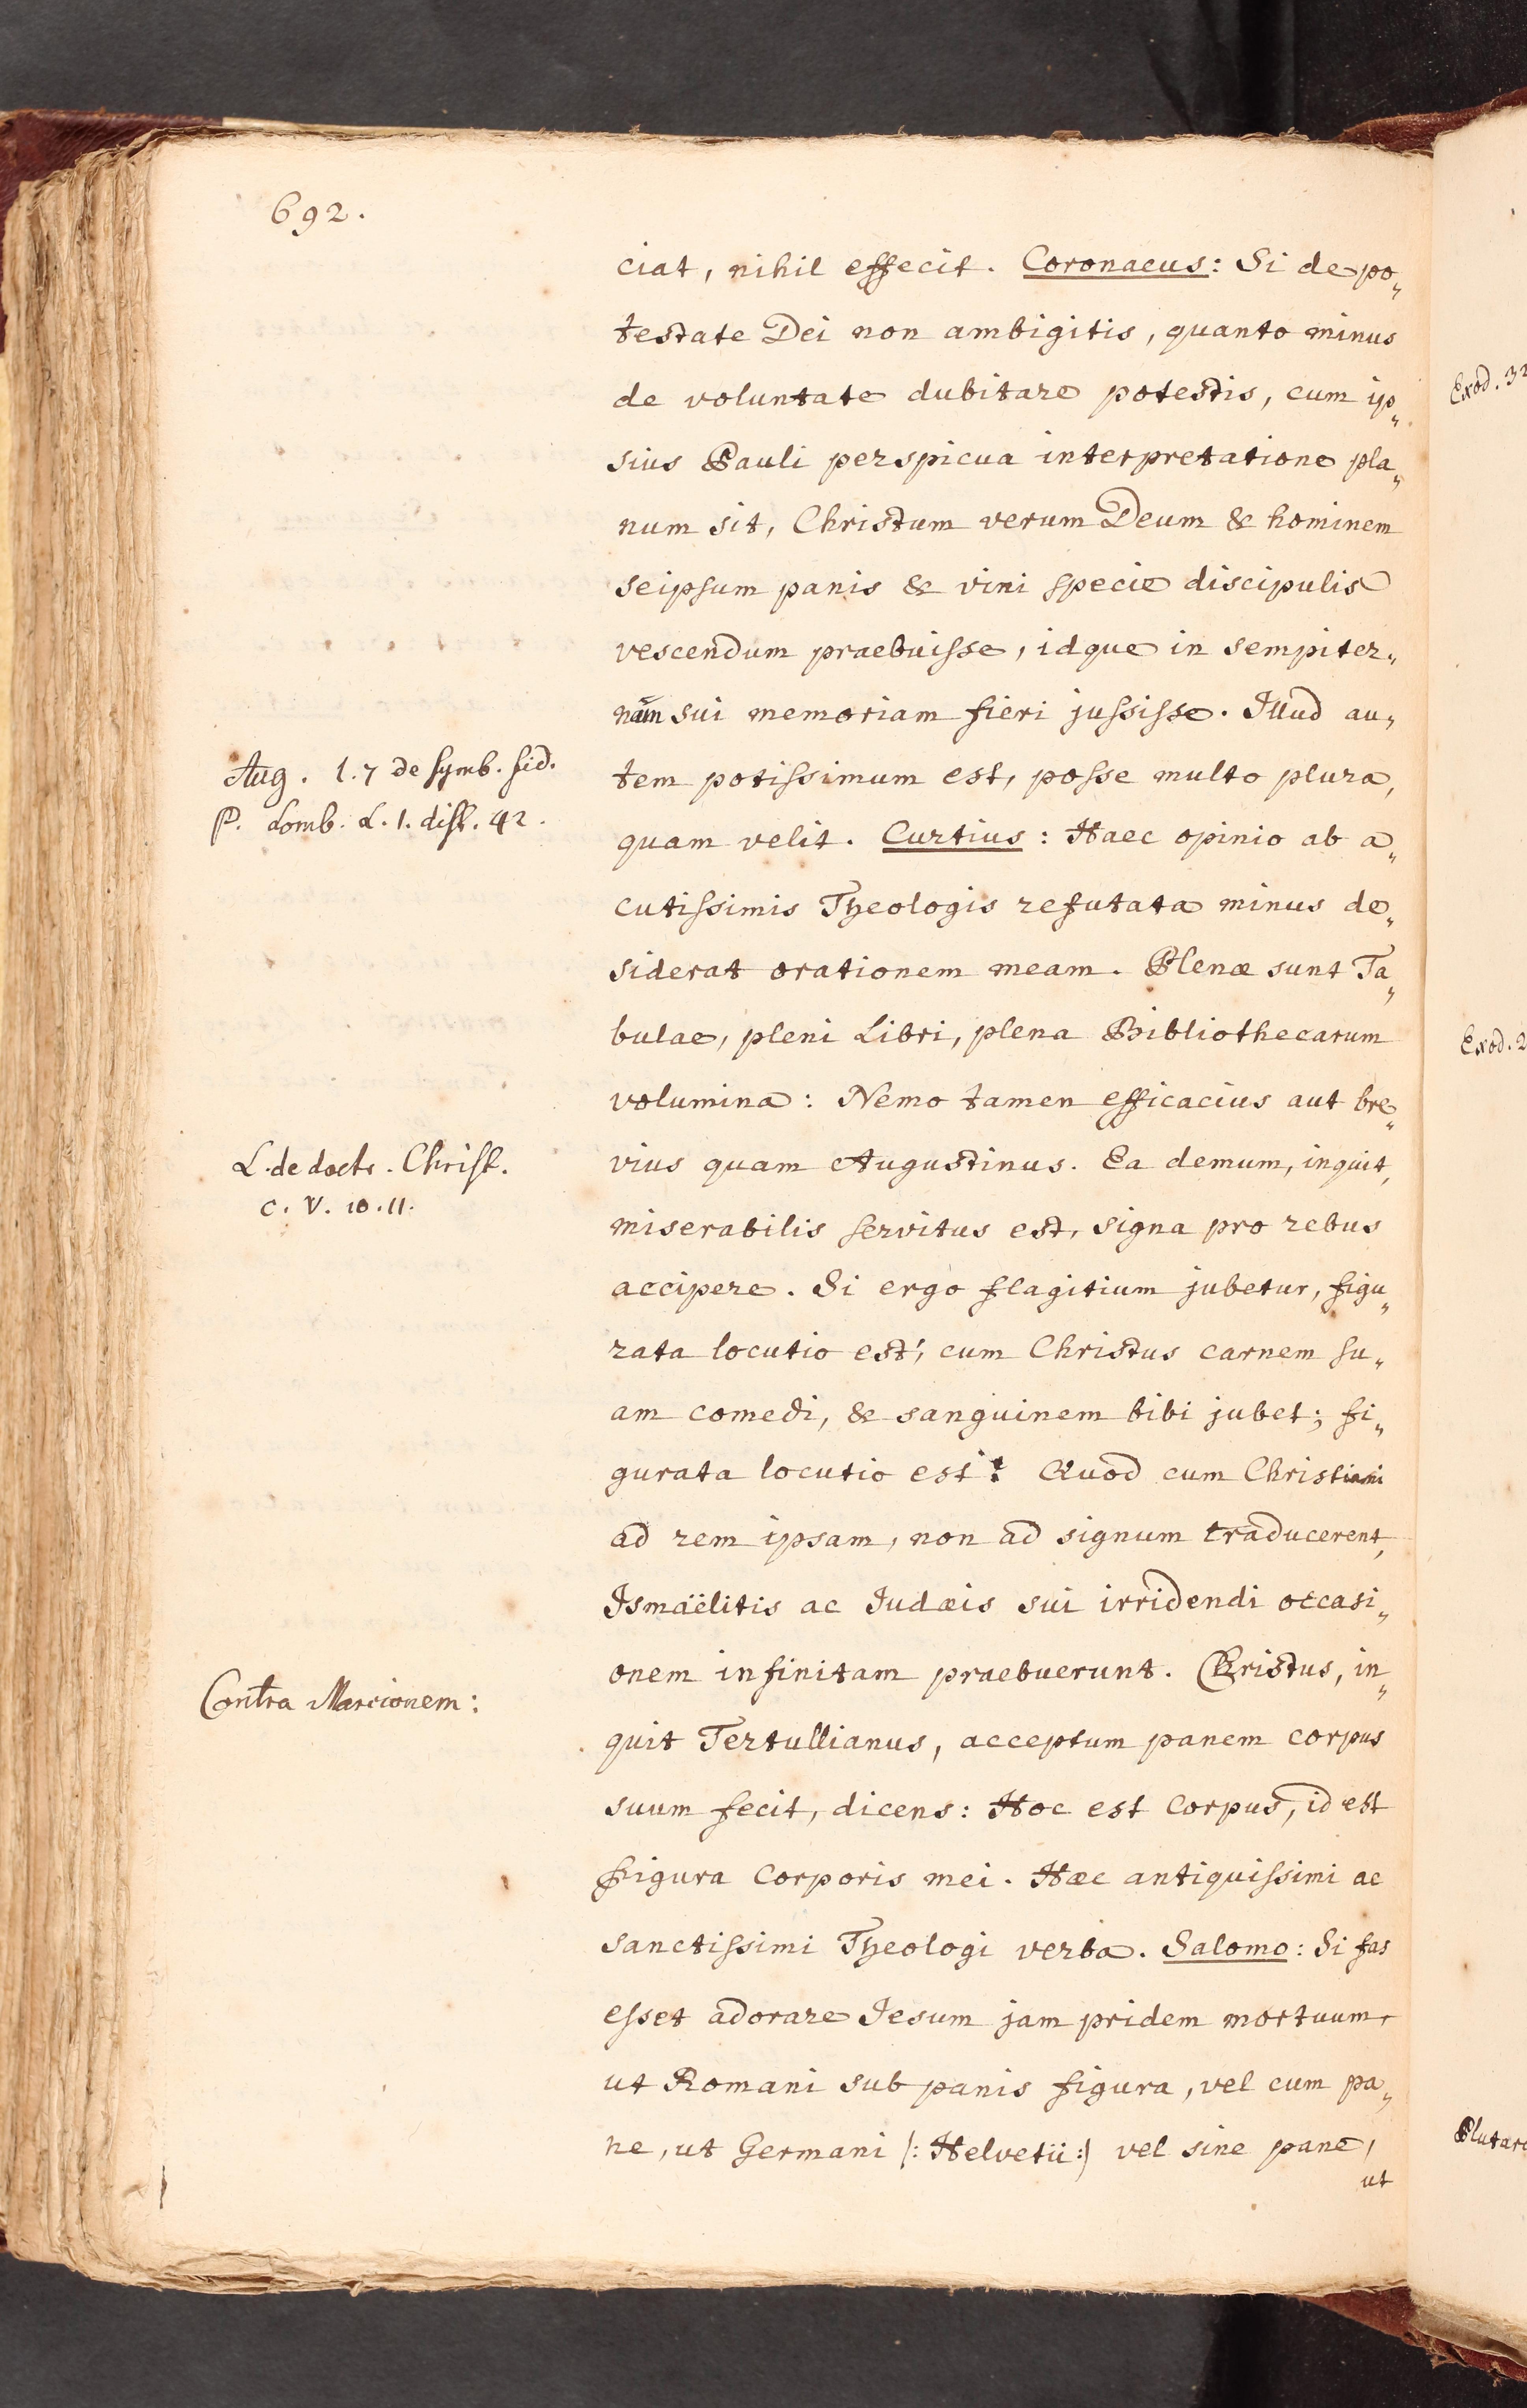 692.
ciat, nihil effecit. Coronaeus: Si de po„
testate Dei non ambigitis, quanto minus
de voluntate dubitare potestis, cum ip„
sius Pauli perspicua interpretatione pla„
num sit, Christum verum Deum & hominem
seipsum panis & vini specie discipulis
vescendum praebuisse, idque in sempiter„
nam sui memoriam fieri jussisse. Illud au„
Aug. l. 7 de symb. fid.
P. Lomb. L. 1. dist. 42.
tem potissimum est, posse multo plura,
quam velit. Curtius: Haec opinio ab a„
cutissimis Theologis refutata minus de„
siderat orationem meam. Plenæ sunt Ta„
bulae, pleni Libri, plena Bibliothecarum
volumina: Nemo tamen efficacius aut bre„
L. de doctr. Christ.
c. V. 10. 11.
vius quam Augustinus. Ea demum, inquit,
miserabilis servitus est, signa pro rebus
accipere. Si ergo flagitium jubetur, figu„
rata locutio est, cum Christus carnem su„
am comedi, & sanguinem bibi jubet; fi„
gurata locutio est: Quod cum Christiani
ad rem ipsam, non ad signum traducerent,
Ismaëlitis ac Iudæis sui irridendi occasi„
onem infinitam praebuerunt. Christus, in„
Contra Marcionem:
quit Tertullianus, acceptum panem corpus
suum fecit, dicens: Hoc est Corpus, id est
figura Corporis mei. Hæc antiquissimi ac
sanctissimi Theologi verba. Salomo: Si fas
esset adorare Iesum jam pridem mortuum,
ut Romani sub panis figura, vel cum pa„
ne, ut Germani (: Helvetii :) vel sine pane,
ut
Exod. 32
Exod. 2
Plutarc